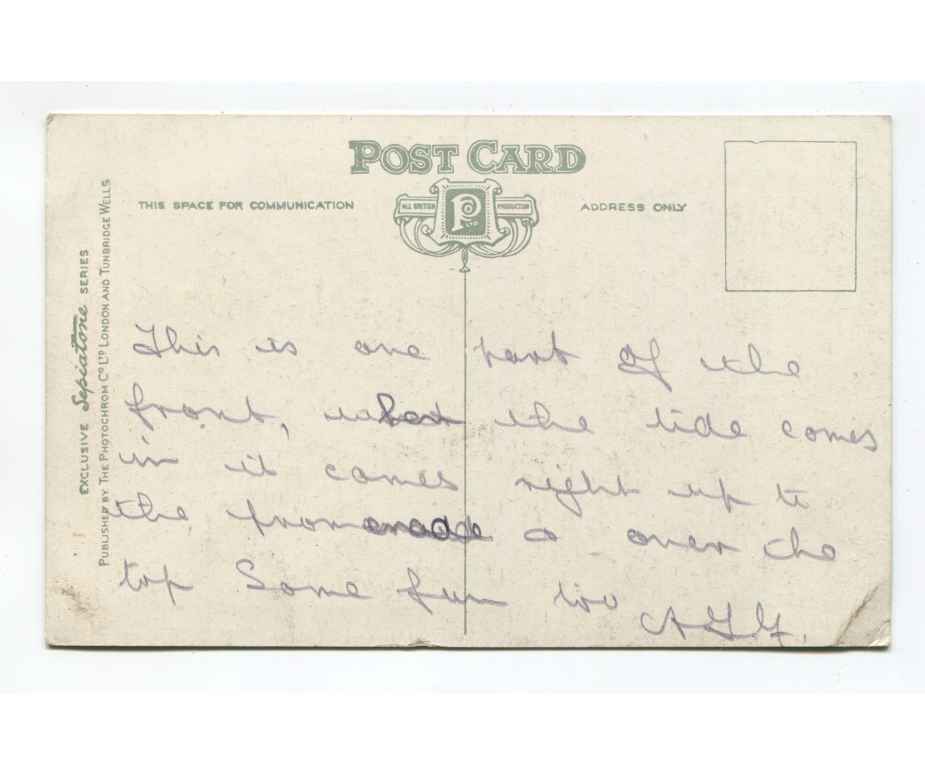 POST CARD
THIS SPACE FOR COMMUNICATION
ALL BRITISH PRODUCTION
P
ADDRESS ONLY
EXCLUSIVE Sepiatone SERIES
PUBLISHED BY THE PHOTOCHROM CO LTD LONDON AND TUNBRIDGE WELLS
This is one part of the
front, when the tide comes
in it comes right up to
the promenade & over the
top Some fun too